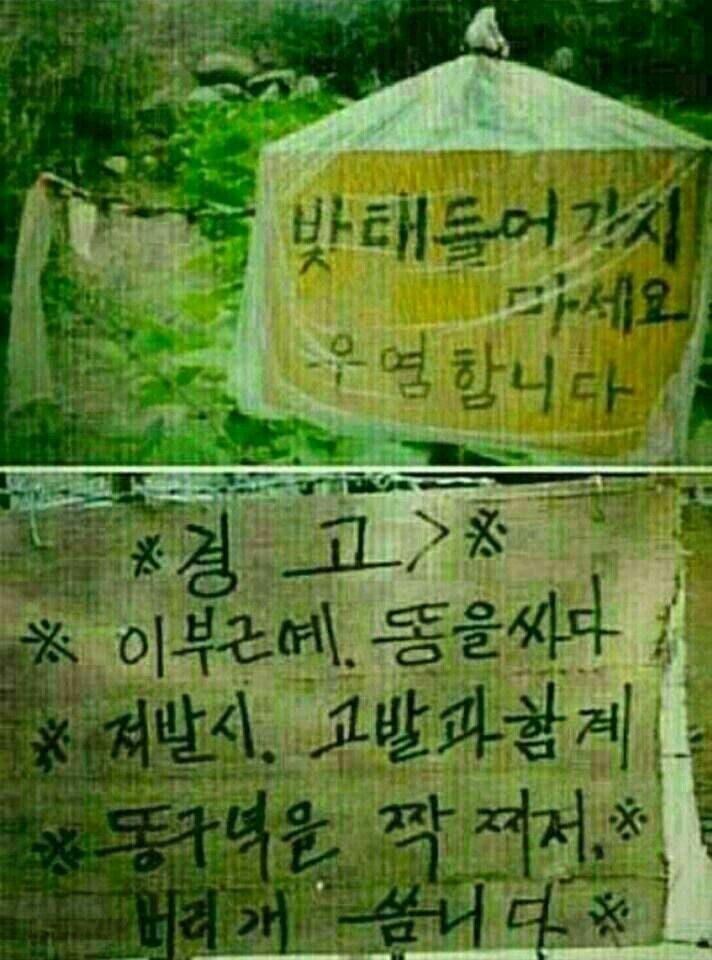 밪태들어가시
마세요
우염합니다
※경고>※
※ 이부근예. 똥을싸다
※ 져발시. 고발과함계
※ 똥구녁을 짝 찌저.※
버리개 씀니다 ※